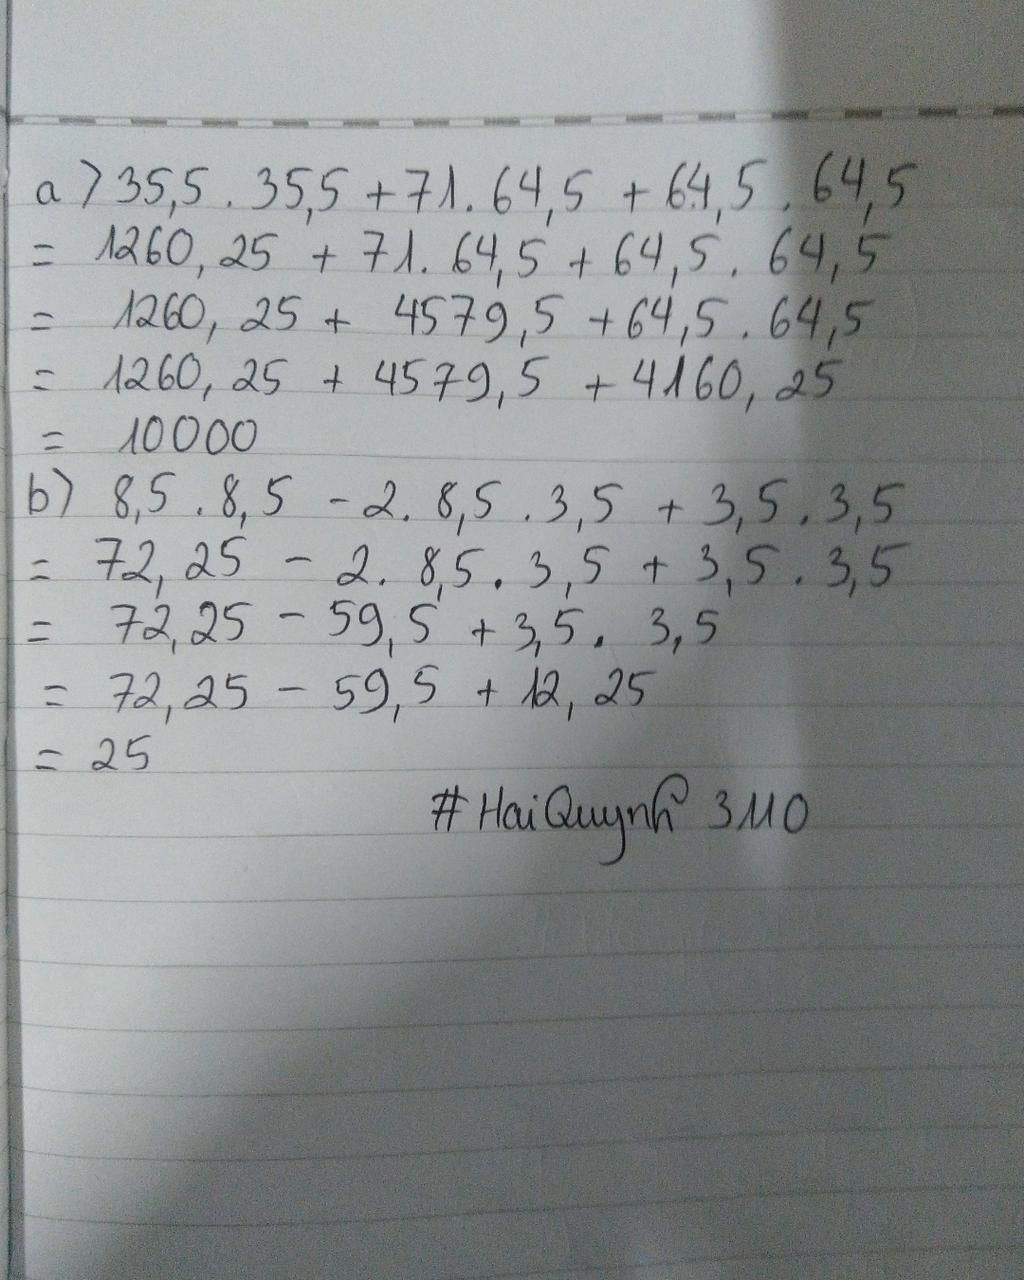 a) 35,5 . 35,5 + 71 . 64,5 + 64,5 . 64,5
= 1260,25 + 71 . 64,5 + 64,5 . 64,5
= 1260,25 + 4579,5 + 64,5 . 64,5
= 1260,25 + 4579,5 + 4160,25
= 10000
b) 8,5 . 8,5 - 2 . 8,5 . 3,5 + 3,5 . 3,5
= 72,25 - 2 . 8,5 . 3,5 + 3,5 . 3,5
= 72,25 - 59,5 + 3,5 . 3,5
= 72,25 - 59,5 + 12,25
= 25
# HaiQuynh 3110